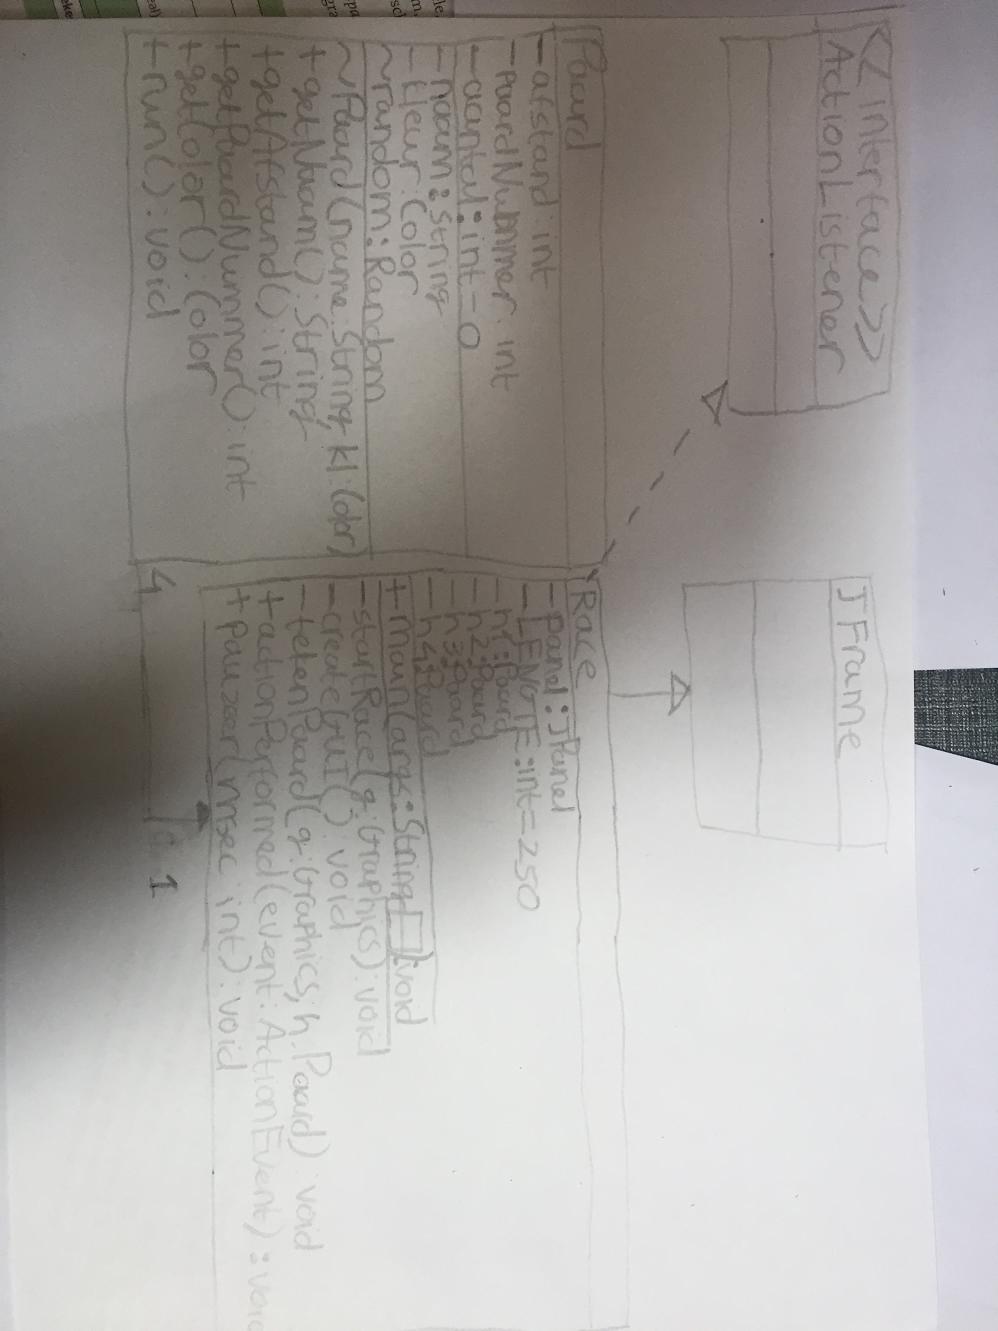 <<interface>>
ActionListener
JFrame
Paard
-afstand:int
-paardNummer:int
-aantal:int=0
-naam:String
-kleur:Color
~random:Random
~Paard(name:String, kl:Color)
+getNaam():String
+getAfstand():int
+getPaardNummer():int
+getColor():Color
+run():void
4
Race
-panel:JPanel
-LENGTE:int=250
-h1:Paard
-h2:Paard
-h3:Paard
-h4:Paard
+main(args:String[]):void
-startRace(g:Graphics):void
-createGUI():void
-tekenPaard(g:Graphics, h:Paard):void
+actionPerformed(event:ActionEvent):void
+pauzeer(msec:int):void
1
le,
m,
sc
pa
gra
eal)
eke